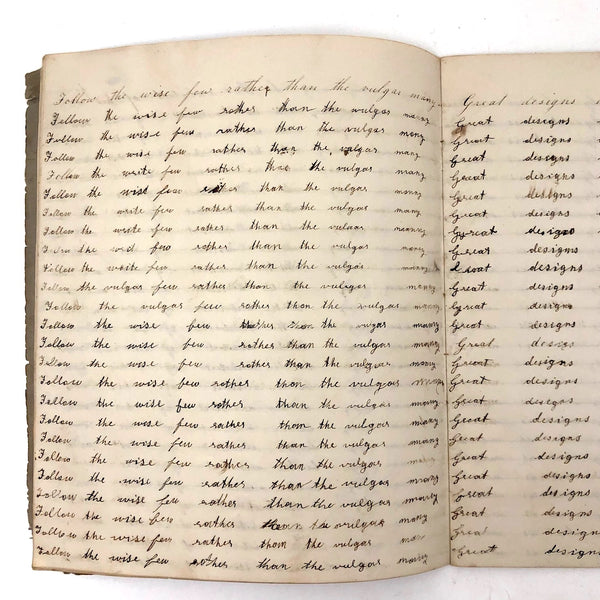 Follow the wise few rather than the vulgar many
Follow the wise few rather than the vulgas many
Follow the wise few rather than the vulgar many
Follow the wise few rather than the vulgas many
Follow the wise few rather than the vulgas many
Follow the wise few rather than the vulgas many
Follow the write few rather than the vulgas many
Follow the wote few rather than the many
Follow the few rather than the vulgas many
Follow the write few rather than the vulgas many
Follow the vulgas few rather than the vulgas many
Follow the vulgas few rather than the vulgas many
Follow the wise few than the many
Follow the wise few rather than the vulgas many
Follow the wise few rather than the vulgas many
Follow the wise few rather than the vulgas many
Follow the wise few rather than the vulgas many
Follow the wise few rather than the vulgas many
Follow the wise few rather than the vulgas many
Follow the wise few rather than the vulgas many
Follow the wise few rather than the vulgas many
Follow the wise few rather than the vulgas many
Follow the wise few rather than the vulgas many
Follow the wise few rather than the vulgas many
Follow the wise few rather than the vulgas many
Great designs
Great designs
Great designs
Great designs
Great designs
Great designs
Great designs
Gyreat designs
Great designs
designs
Great designs
Great designs
Great designs
Great designs
Great designs
Great designs
Great designs
Great designs
Great designs
Great designs
Great designs
Great designs
Great designs
Grea designs
Great designs